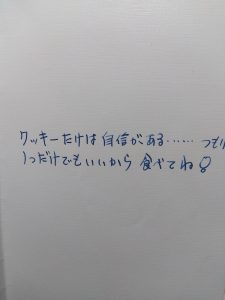 クッキーだけは自信がある…… つもり
1つだけでもいいから 食べてね